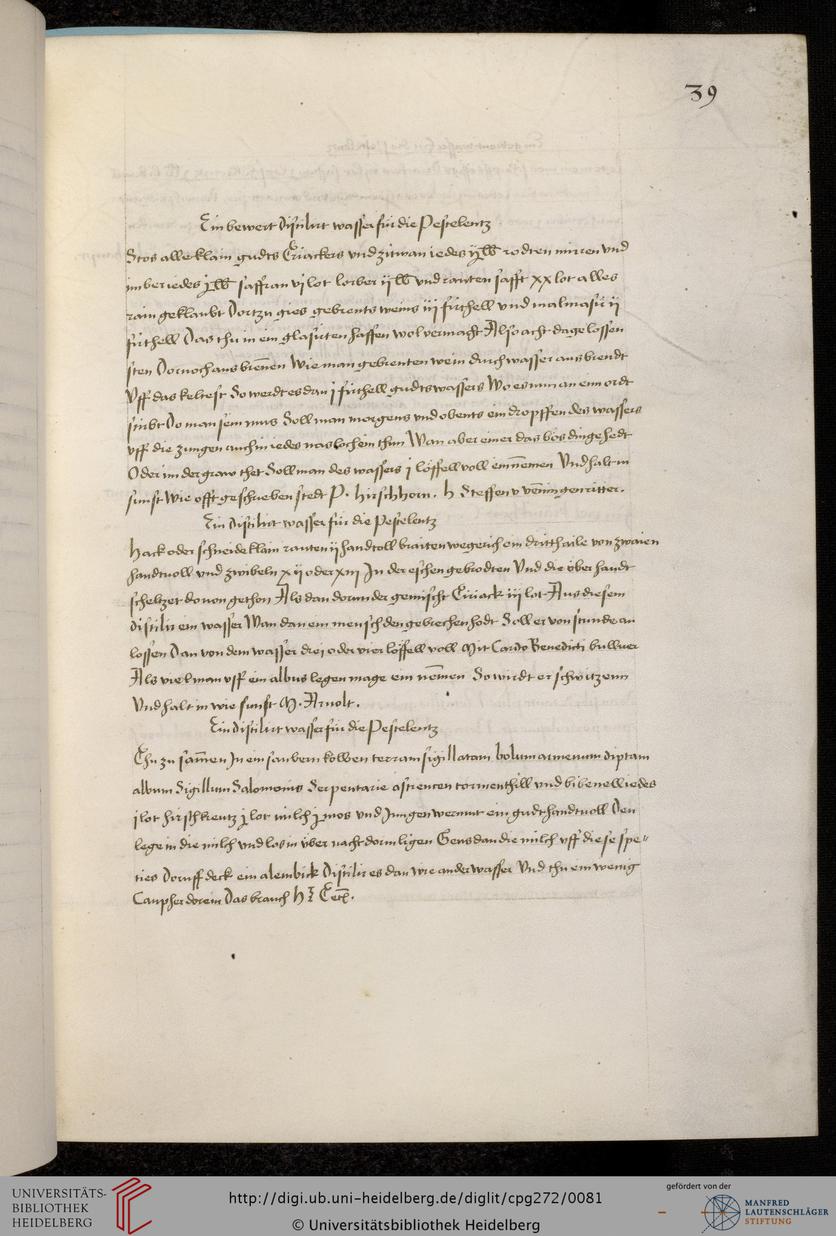 39
Ein bewert Distilirt wasser fur die Pestelentz
Stos alle klain gudts Tiriackers vnd zitwan iedes ij lb rodten mirren vnd
imber iedes j lb saffran vj lot lorber ij lb vnd rauten safft xx lot alles
rain geklaubt Dortzu gies gebrents weins iij firthell vnd malmasir ij
firthell Das thu in ein glasurten haffen wol vermacht Also acht dage lossen
sten Dornoch aus brennen Wie man gebrenten wein durch wasser aus brendt
Vff das keltest So werdt es dan j firthell gudts wassers Wo es nun an eim ordt
stirbt Do man sein mus Soll man morgens vnd obents ein dropffen des wassers
vff die zungen auch in iedes naslochein thun Wan aber einer das bos ding hedt
Oder im der graw thet Soll man des wassers j löffell voll einnemen Vnd halt in
sunst Wie offt geschrieben stedt P. hirschhorn. h Steffen v veningen ritter.
Ein Distilirt wasser fur die Pestelentz
Hack oder schneide klain rauten ij handtoll braiten wegerich ein dritthaile von zwaien
handtuoll vnd zwibeln xij oder xiij In der eschen gebrodten Vnd die vber handt
scheltzet douon gethon Als dan dorunder gemischt Tiriack iij lot Aus diesem
distilir ein wasser Wan dan ein mensch den gebrechen hodt Soll er von stunde an
lossen Dan von dem wasser drei oder vier löffell voll Mit Cardo Benedicti bulluer
Als viel man vff ein albus legen mage ein nemen So wirdt er schwitzenn
Vnd halt in wie sunst M. Arnolt.
Ein distilirt wasser fur die Pestelentz
Thu zu samen In ein saubern kolben terram sigillatam bolum armenum diptam
album Sigillum Salomonis Serpentarie astrencen tormenthill vnd bibenell iedes
j lot hirschkreutz j lot milch j mos vnd Jungen wermut ein gudt handtuoll Den
lege in die milch vnd los in vber nacht dorin ligen Geus dan die milch vff diese spe„
ties Doruff deck ein alembick Distilir es dan wie ander wasser Vnd thu ein wenig
Campher dorein Das brauch
UNIVERSITÄTS-
BIBLIOTHEK
HEIDELBERG
http://digi.ub.uni-heidelberg.de/diglit/cpg272/0081
© Universitätsbibliothek Heidelberg
gefördert von der
MANFRED
LAUTENSCHLÄGER
STIFTUNG